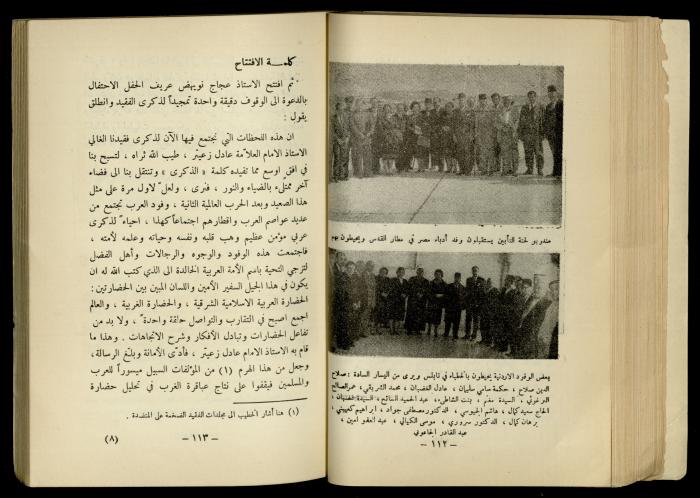 مندوبو لجنة التأبين يستقبلون وفد أدباء مصر في مطار القدس ويحيطون بهم
بعض الوفود الاردنية يحيطون بالخطباء في نابلس ويرى من اليسار السادة : صلاح
الدين صلاح ، حكمة سامي سليمان ، عادل الغضبان ، محمد الشريقي ، عمر الصالح
البرغوثي ، السيدة ، بنت الشاطىء ، عبد الحميد السائح ، السيدة
الحاج سعيد كمال ، هاشم الجيوسي ، الدكتور مصطفى جواد ، ابراهيم
برهان كمال ، الدكتور سروري ، موسى الكيالي ، عبد الغفو امين ،
عبد القادر الجاعوني
– ١١٢ –
كلمة الافتتاح
ثم افتتح الاستاذ عجاج نويهض عريف الحفل الاحتفال
بالدعوة الى الوقوف دقيقة واحدة تمجيداً لذكرى الفقيد وانطلق
يقول :
ان هذه اللحظات التي نجتمع فيها الآن لذكرى فقيدنا الغالي
الاستاذ الامام العلامة عادل زعيتر ، طيب الله ثراه ، لتسبح بنا
في افق اوسع مما تفيده كلمة « الذكرى » وتنتقل بنا الى فضاء
آخر ممتلىء بالضياء والنور ، فنرى ، ولعل لاول مرة على مثل
هذا الصعيد وبعد الحرب العالمية الثانية ، وفود العرب تجتمع من
عديد عواصم العرب واقطارهم اجتماعاً كهذا ، احياء لذكرى
عربي مؤمن عظيم وهب قلبه ونفسه وحياته وعلمه لأمته ،
فاجتمعت هذه الوفود والوجوه والرجالات وأهل الفضل
لتزجي التحية باسم الأمة العربية الخالدة الى الذي كتب الله له ان
يكون في هذا الجيل السفير الأمين واللسان المبين بين الحضارتين :
الحضارة العربية الاسلامية الشرقية ، والحضارة الغربية ، والعالم
اجمع اصبح في التقارب والتواصل حلقة واحدة ، ولا بد من
تفاعل الحضارات وتبادل الأفكار وشرح الاتجاهات . وهذا ما
قام به الاستاذ الامام عادل زعيتر ، فأدّى الأمانة وبلّغ الرسالة ،
وجعل من هذا الهرم (١) من المؤلفات السبيل ميسوراً للعرب
والمسلمين فيقفوا على نتاج عباقرة الغرب في تحليل حضارة
(١) هنا أشار الخطيب الى مجلدات الفقيد الضخمة على المنضدة .
– ١١٣ –
(٨)